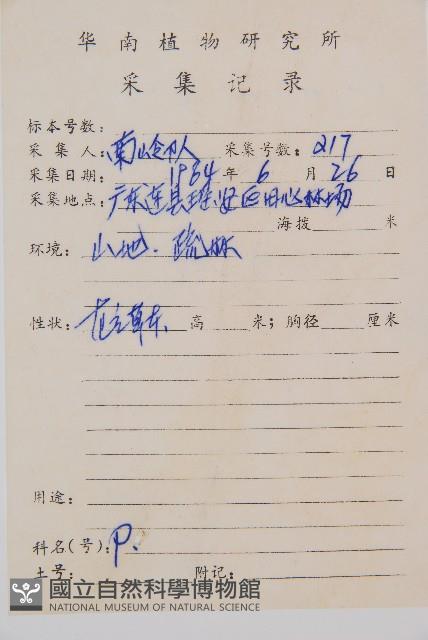 华南植物研究所
采集记录
标本号数:
采集人: 南岭队 采集号数: 217
采集日期: 1984年 6月 26日
采集地点: 广东连县瑶安区田心林场
海拨 米
环境: 山地. 疏林
性状: 直立草本 高 米; 胸径 厘米
用途:
科名(号): P.
土号: 附记:
國立自然科學博物館
NATIONAL MUSEUM OF NATURAL SCIENCE